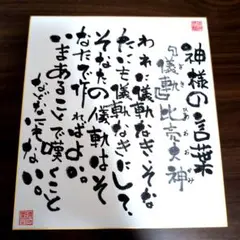 神様の言葉
儀軌比売大神
われに儀軌なき、そな
たにも儀軌なきにして、
そなたの儀軌はそ
なたで作ればよい。
いまあることで嘆くこと